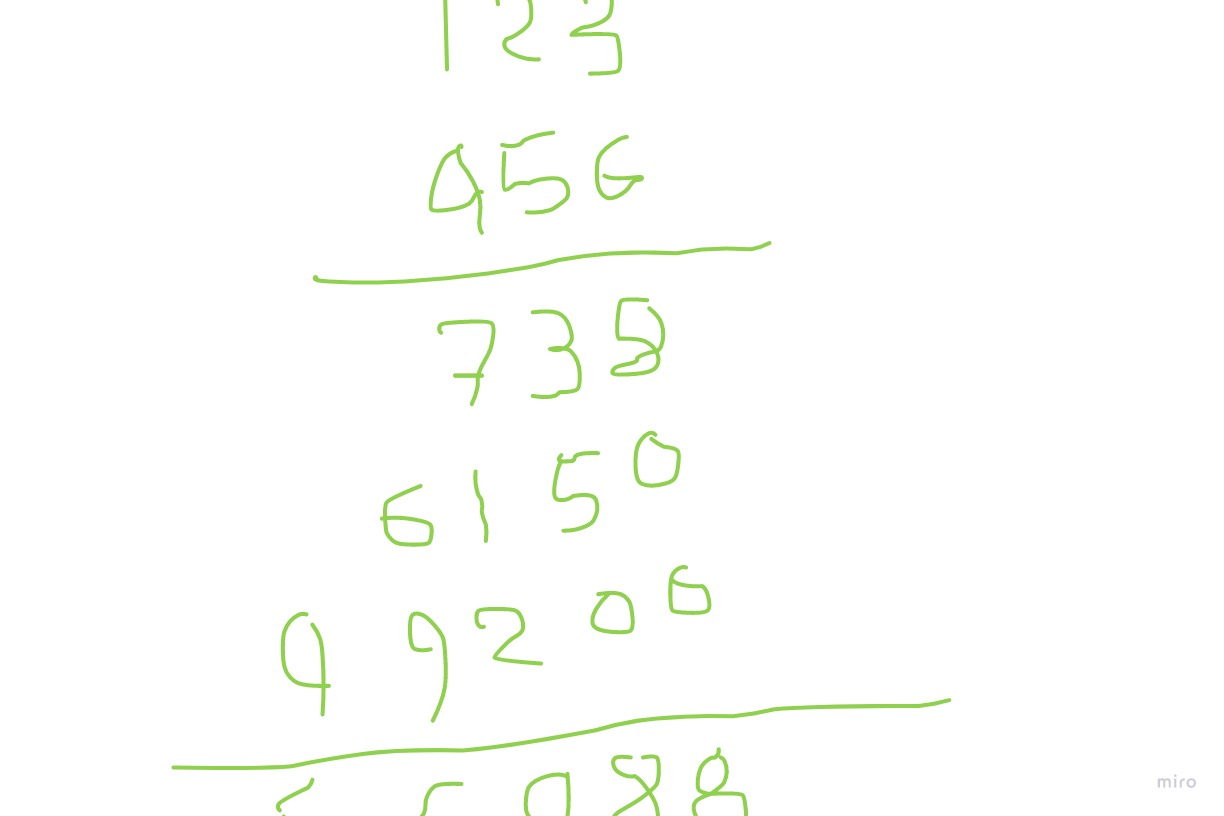 123
456
738
6150
49200
miro